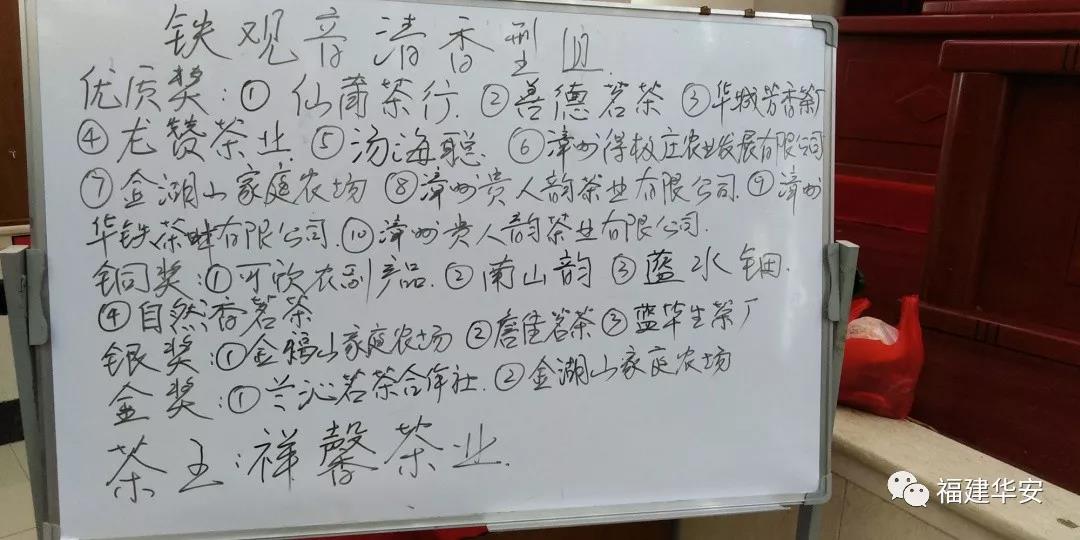 铁观音清香型组
优质奖:① 仙莆茶行.②善德茗茶 ③华城芳香茶厂
④龙赞茶业 ⑤汤海聪 ⑥漳州得校庄农业发展有限公司
⑦金湖山家庭农场 ⑧漳州贵人韵茶业有限公司.⑨漳州
华铁茶业有限公司.⑩漳州贵人韵茶业有限公司.
铜奖:①可饮农副产品.②南山韵 ③蓝水钿.
④自然香茗茶
银奖:①金福山家庭农场 ②唐佳茗茶③蓝华生茶厂
金奖:①兰沁茗茶合作社.②金湖山家庭农场
茶王:祥馨茶业.
福建华安